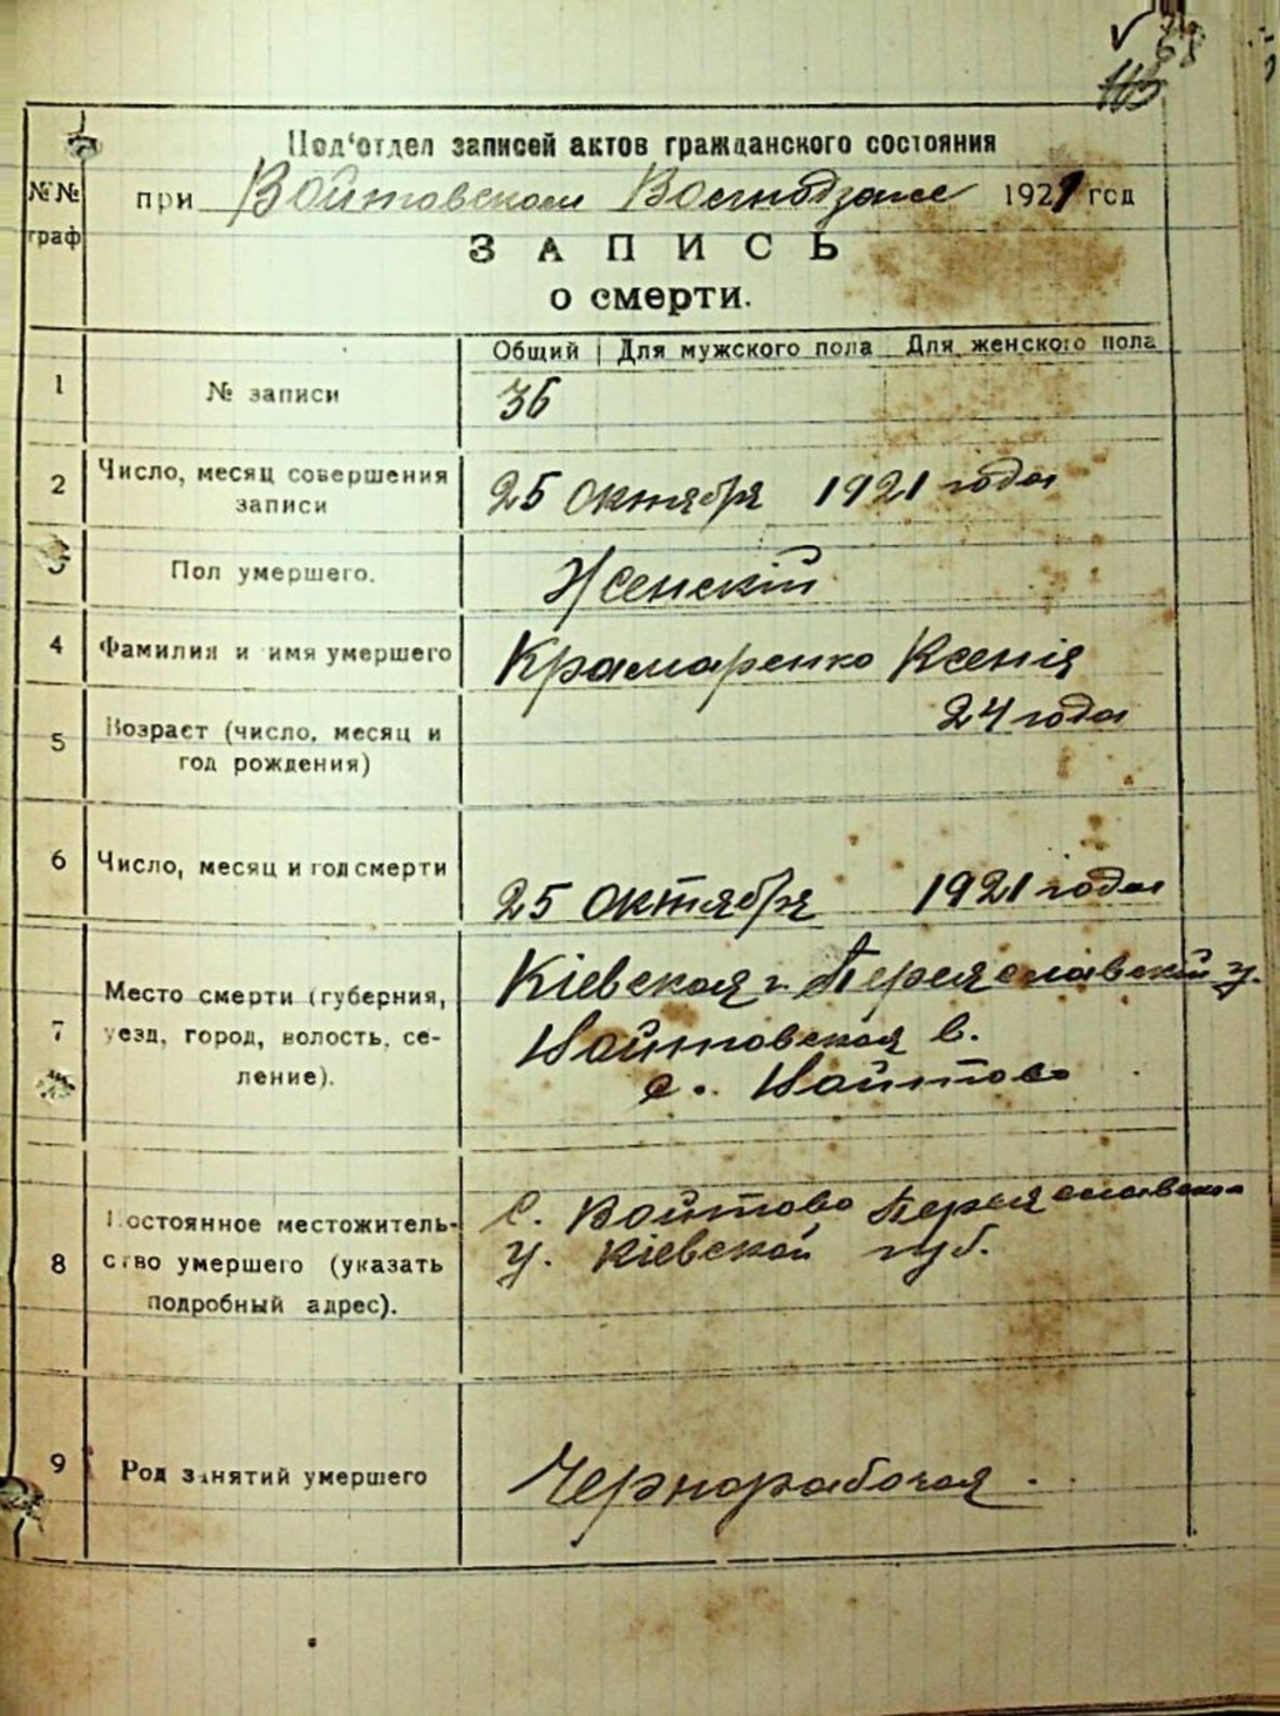 68
113
Под'отдел записей актов гражданского состояния
№№ граф
при Войтовском Волподзаге 1921 год
ЗАПИСЬ
о смерти.
Общий | Для мужского пола Для женского пола
1 № записи 36
2 Число, месяц совершения
записи
25 октября 1921 года
3 Пол умершего. Женскій
4 Фамилия и имя умершего Крамаренко Ксенія
5 Возраст (число, месяц и
год рождения)
24 года
6 Число, месяц и год смерти 25 октября 1921 года
7 Место смерти (губерния,
уезд, город, волость, се-
ление).
Кіевская г. Переяславскій у.
Войтовская в.
с. Войтово
8 Постоянное местожитель-
ство умершего (указать
подробный адрес).
с. Войтово Переяславского
у. Кіевской губ.
9 Род занятий умершего Чернорабочая.